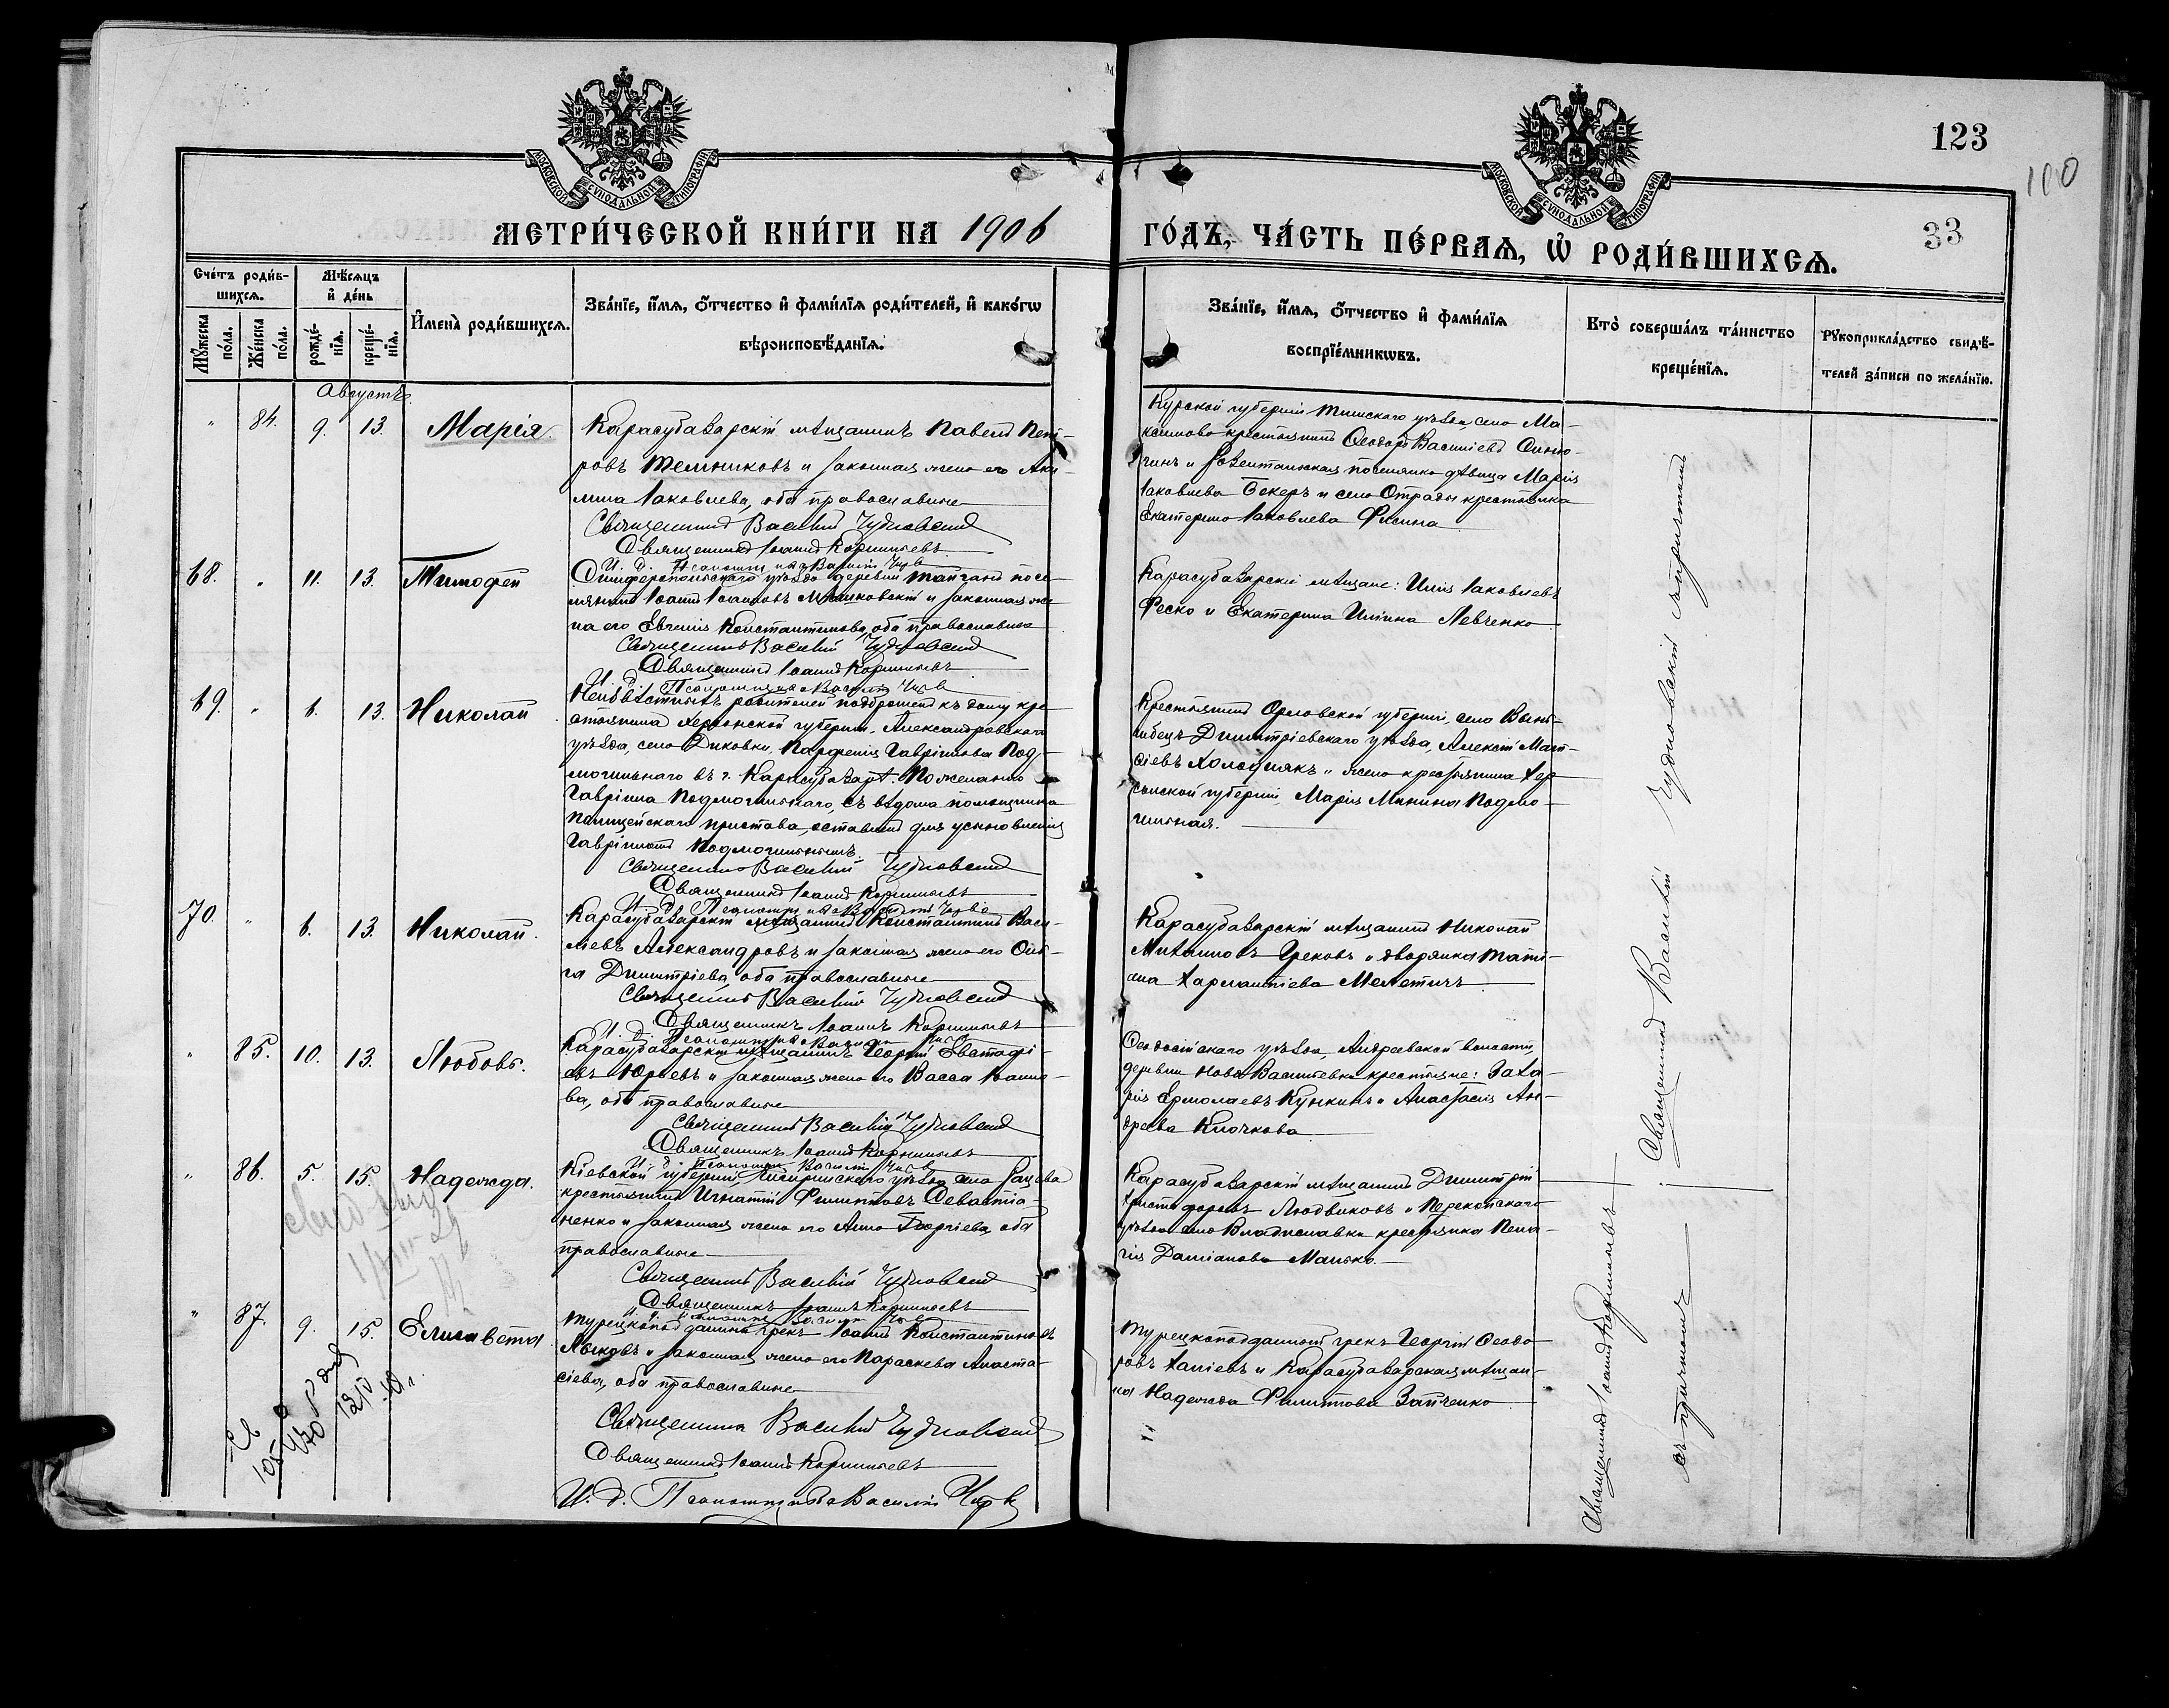 123
100
33
МОСКОВСКОЙ СѴНОДАЛЬНОЙ ТИПОГРАФІИ
МОСКОВСКОЙ СѴНОДАЛЬНОЙ ТИПОГРАФІИ
МЕТРИ́ЧЕСКОЙ КНИ́ГИ НА 1906
ГО́ДЪ, ЧА́СТЬ ПЕ́РВАѦ, Ѡ РОДИ́ВШИХСѦ.
Сче́тъ роди́в-
шихсѧ.
Мѣ́сѧцъ
и де́нь
Мꙋ́жеска
по́ла.
Же́нска
по́ла.
рожде́-
нїѧ.
креще́-
нїѧ.
Имена̀ роди́вшихсѧ.
Зва́нїе, и́мѧ, о́тчество и фами́лїѧ роди́телей, и како́гѡ
вѣроисповѣ́данїѧ.
Зва́нїе, и́мѧ, о́тчество и фами́лїѧ
воспрїе́мникѡвъ.
Кто̀ соверша́лъ та́инство
креще́нїѧ.
Рꙋкоприкла́дство свидѣ́-
телей за́писи по жела́нїю.
Августъ.
" 84. 9. 13. Марія.
Карасубазарскій мѣщанинъ Павелъ Пет-
ровъ Мельниковъ и законная жена его Аки-
лина Іаковлева, оба православные
Священникъ Василій Чудновскій
Священникъ Іоаннъ Корнильевъ
И. д. Псаломщика Василій
Курской губерніи Тимскаго уѣзда, село Ма-
ксимово крестьянинъ Ѳеодоръ Васильевъ
и поселянка дѣвица Марія
Іаковлева Бекеръ и села Отрады крестьянка
Екатерина Іаковлева
68. " 11. 13. Тимоѳей
Симферопольскаго уѣзда деревни посе-
лянинъ Іоаннъ Іоанновъ и законная же-
на его Евгенія Константинова, оба православные
Священникъ Василій Чудновскій
Священникъ Іоаннъ Корнильевъ
И. д. Псаломщика Василій
Карасубазарскіе мѣщане: Илія Іаковлевъ
Феско и Екатерина Иліина Левченко
69. " 6. 13. Николай
Неизвѣстныхъ родителей подброшенъ къ дому кре-
стьянина Херсонской губерніи, Александровскаго
уѣзда, село Диковки, Парѳенія Гавріилова Под-
могильнаго въ г. Карасубазарѣ. По желанію
Гавріила Подмогильнаго, съ вѣдома помощника
Полицейскаго пристава, оставленъ для усыновленія
Гавріиломъ Подмогильнымъ.
Священникъ Василій Чудновскій
Священникъ Іоаннъ Корнильевъ
И. д. Псаломщика Василій
Крестьянинъ Орловской губерніи, село
Димитріевскаго уѣзда, Алексій Мат-
ѳіевъ Холоднякъ и жена крестьянина Хер-
сонской губерніи, Марія Минина Подмо-
гильная.
70. " 6. 13. Николай.
Карасубазарскій мѣщанинъ Константинъ Васи-
льевъ Александровъ и законная жена его Оль-
га Димитріева, оба православные
Священникъ Василій Чудновскій
Священникъ Іоаннъ Корнильевъ
И. д. Псаломщика Василій
Карасубазарскій мѣщанинъ Николай
Михаиловъ Грековъ и дворянка Тать-
яна Харлампіева Мелетичъ
" 85. 10. 13. Любовь.
Карасубазарскій мѣщанинъ Георгій Евстафі-
евъ Юрьевъ и законная жена его Васса Іоанно-
ва, оба православные
Священникъ Василій Чудновскій
Священникъ Іоаннъ Корнильевъ
И. д. Псаломщика Василій
Ѳеодосійскаго уѣзда, Андреевской волости,
деревни Ново Васильевки крестьяне: Заха-
рія Ермолаевъ Кункинъ и Анастасія Ан-
дреева Клочкова
" 86. 5. 15. Надежда.
Кіевской губерніи, Чигиринскаго уѣзда села Рацева
крестьянинъ Игнатій Филипповъ Севастіа-
ненко и законная жена его Анна Георгіева, оба
православные
Священникъ Василій Чудновскій
Священникъ Іоаннъ Корнильевъ
Карасубазарскій мѣщанинъ Димитрій
Христофоровъ Людвиковъ и Перекопскаго
уѣзда село Владиславки крестьянка Пела-
гія Даміанова Манько.
" 87. 9. 15. Елисавета
Турецкоподданный грекъ Іоаннъ Константиновъ
и законная жена его Параскева Анаста-
сіева, оба православные
Священникъ Василій Чудновскій
Священникъ Іоаннъ Корнильевъ
И. д. Псаломщика Василій
Турецкоподданный грекъ Георгій Ѳеодо-
ровъ Ханіевъ и Карасубазарская мѣщан-
ка Надежда Филиппова Зайченко
Священникъ Василій Чудновскій съ причтомъ
Священникъ Іоаннъ Корнильевъ
съ причтомъ